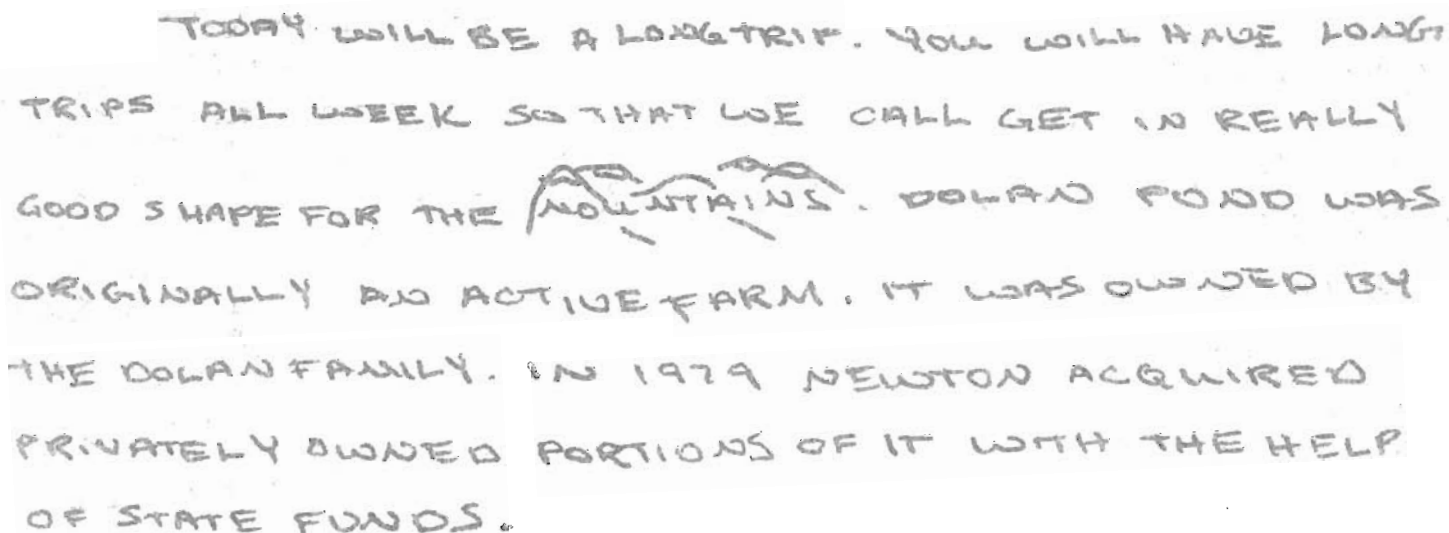 TODAY WILL BE A LONG TRIP. YOU WILL HAVE LONG
TRIPS ALL WEEK SO THAT WE CALL GET IN REALLY
GOOD SHAPE FOR THE MOUNTAINS. DOLAN POND WAS
ORIGINALLY AN ACTIVE FARM. IT WAS OWNED BY
THE DOLAN FAMILY. IN 1979 NEWTON ACQUIRED
PRIVATELY OWNED PORTIONS OF IT WITH THE HELP
OF STATE FUNDS.